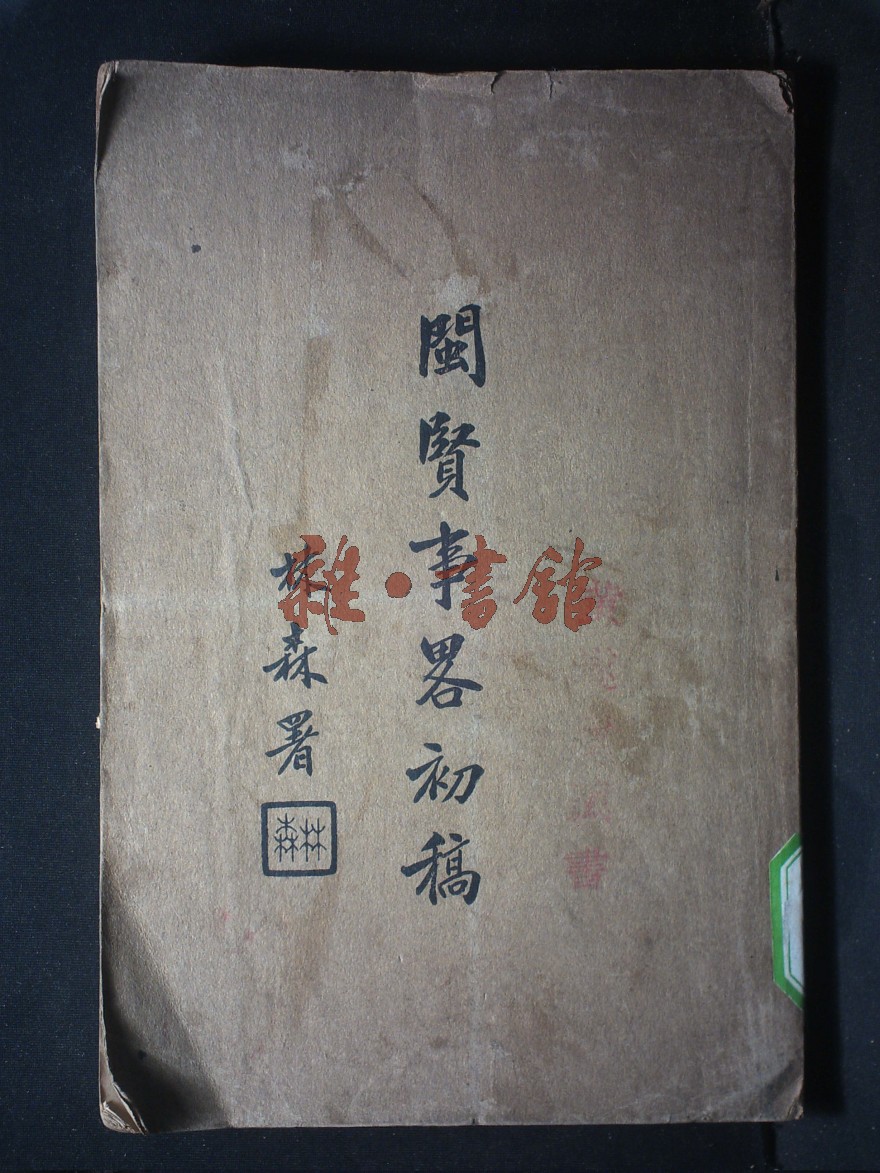 閩賢事畧初稿
林森署
林森
雜·書館
書